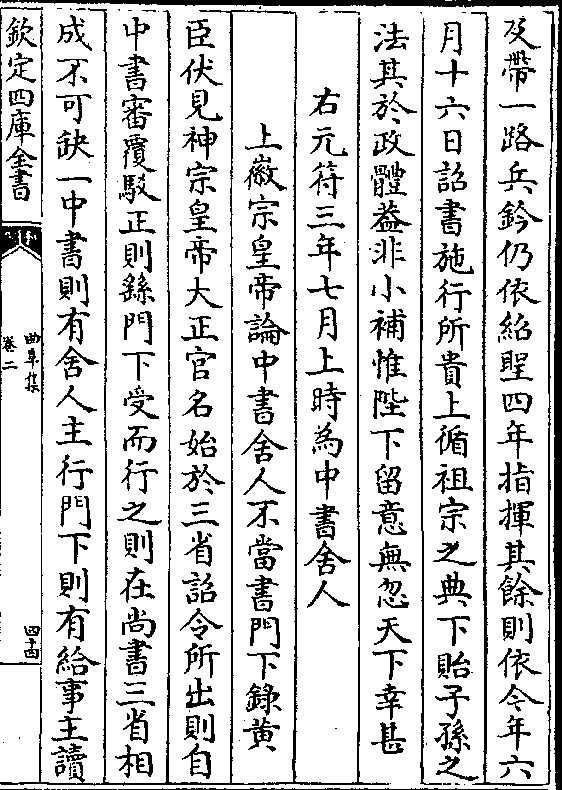 及帶一路兵鈐仍依紹聖四年指揮其餘則依今年六
月十六日詔書施行所貴上循祖宗之典下貽子孫之
法其於政體葢非小補惟陛下留意無忽天下幸甚
右元符三年七月上時為中書舍人
上徽宗皇帝論中書舍人不當書門下錄黃
臣伏見神宗皇帝大正官名始於三省詔令所出則自
中書審覆駮正則繇門下受而行之則在尚書三省相
成不可缺一中書則有舍人主行門下則有給事主讀
欽定四庫全書
曲阜集
卷二
四十四